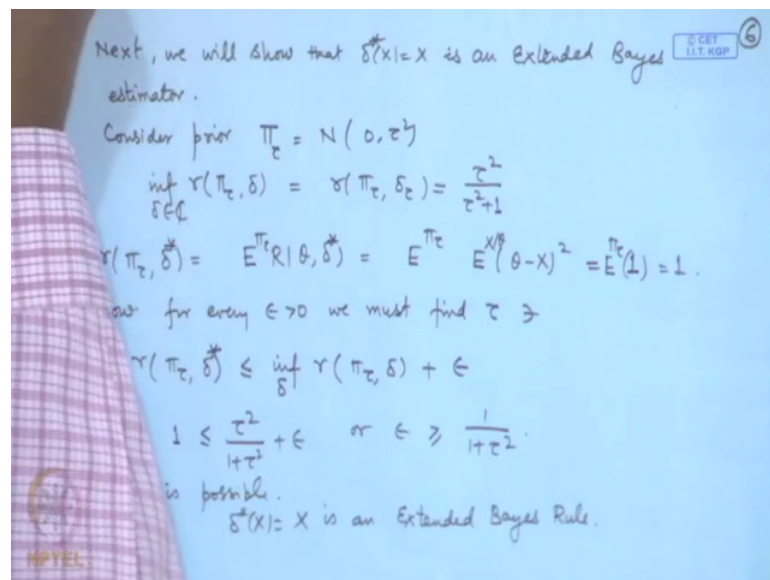 Next, we will show that δ*(X) = X is an Extended Bayes
estimator.
© CET
I.I.T. KGP
6
Consider prior π_τ = N(0, τ²)
inf_{δ∈C} r(π_τ, δ) = r(π_τ, δ_τ) = τ²/(τ²+1)
r(π_τ, δ*) = E^{π_τ} R(θ, δ*) = E^{π_τ} E^{X|θ}(θ-X)² = E^{π_τ}(1) = 1.
ow for every ϵ >0 we must find τ ∋
r(π_τ, δ*) ≤ inf_δ r(π_τ, δ) + ϵ
1 ≤ τ²/(1+τ²) + ϵ or ϵ ≥ 1/(1+τ²).
is possible.
δ*(X) = X is an Extended Bayes Rule.
NPTEL